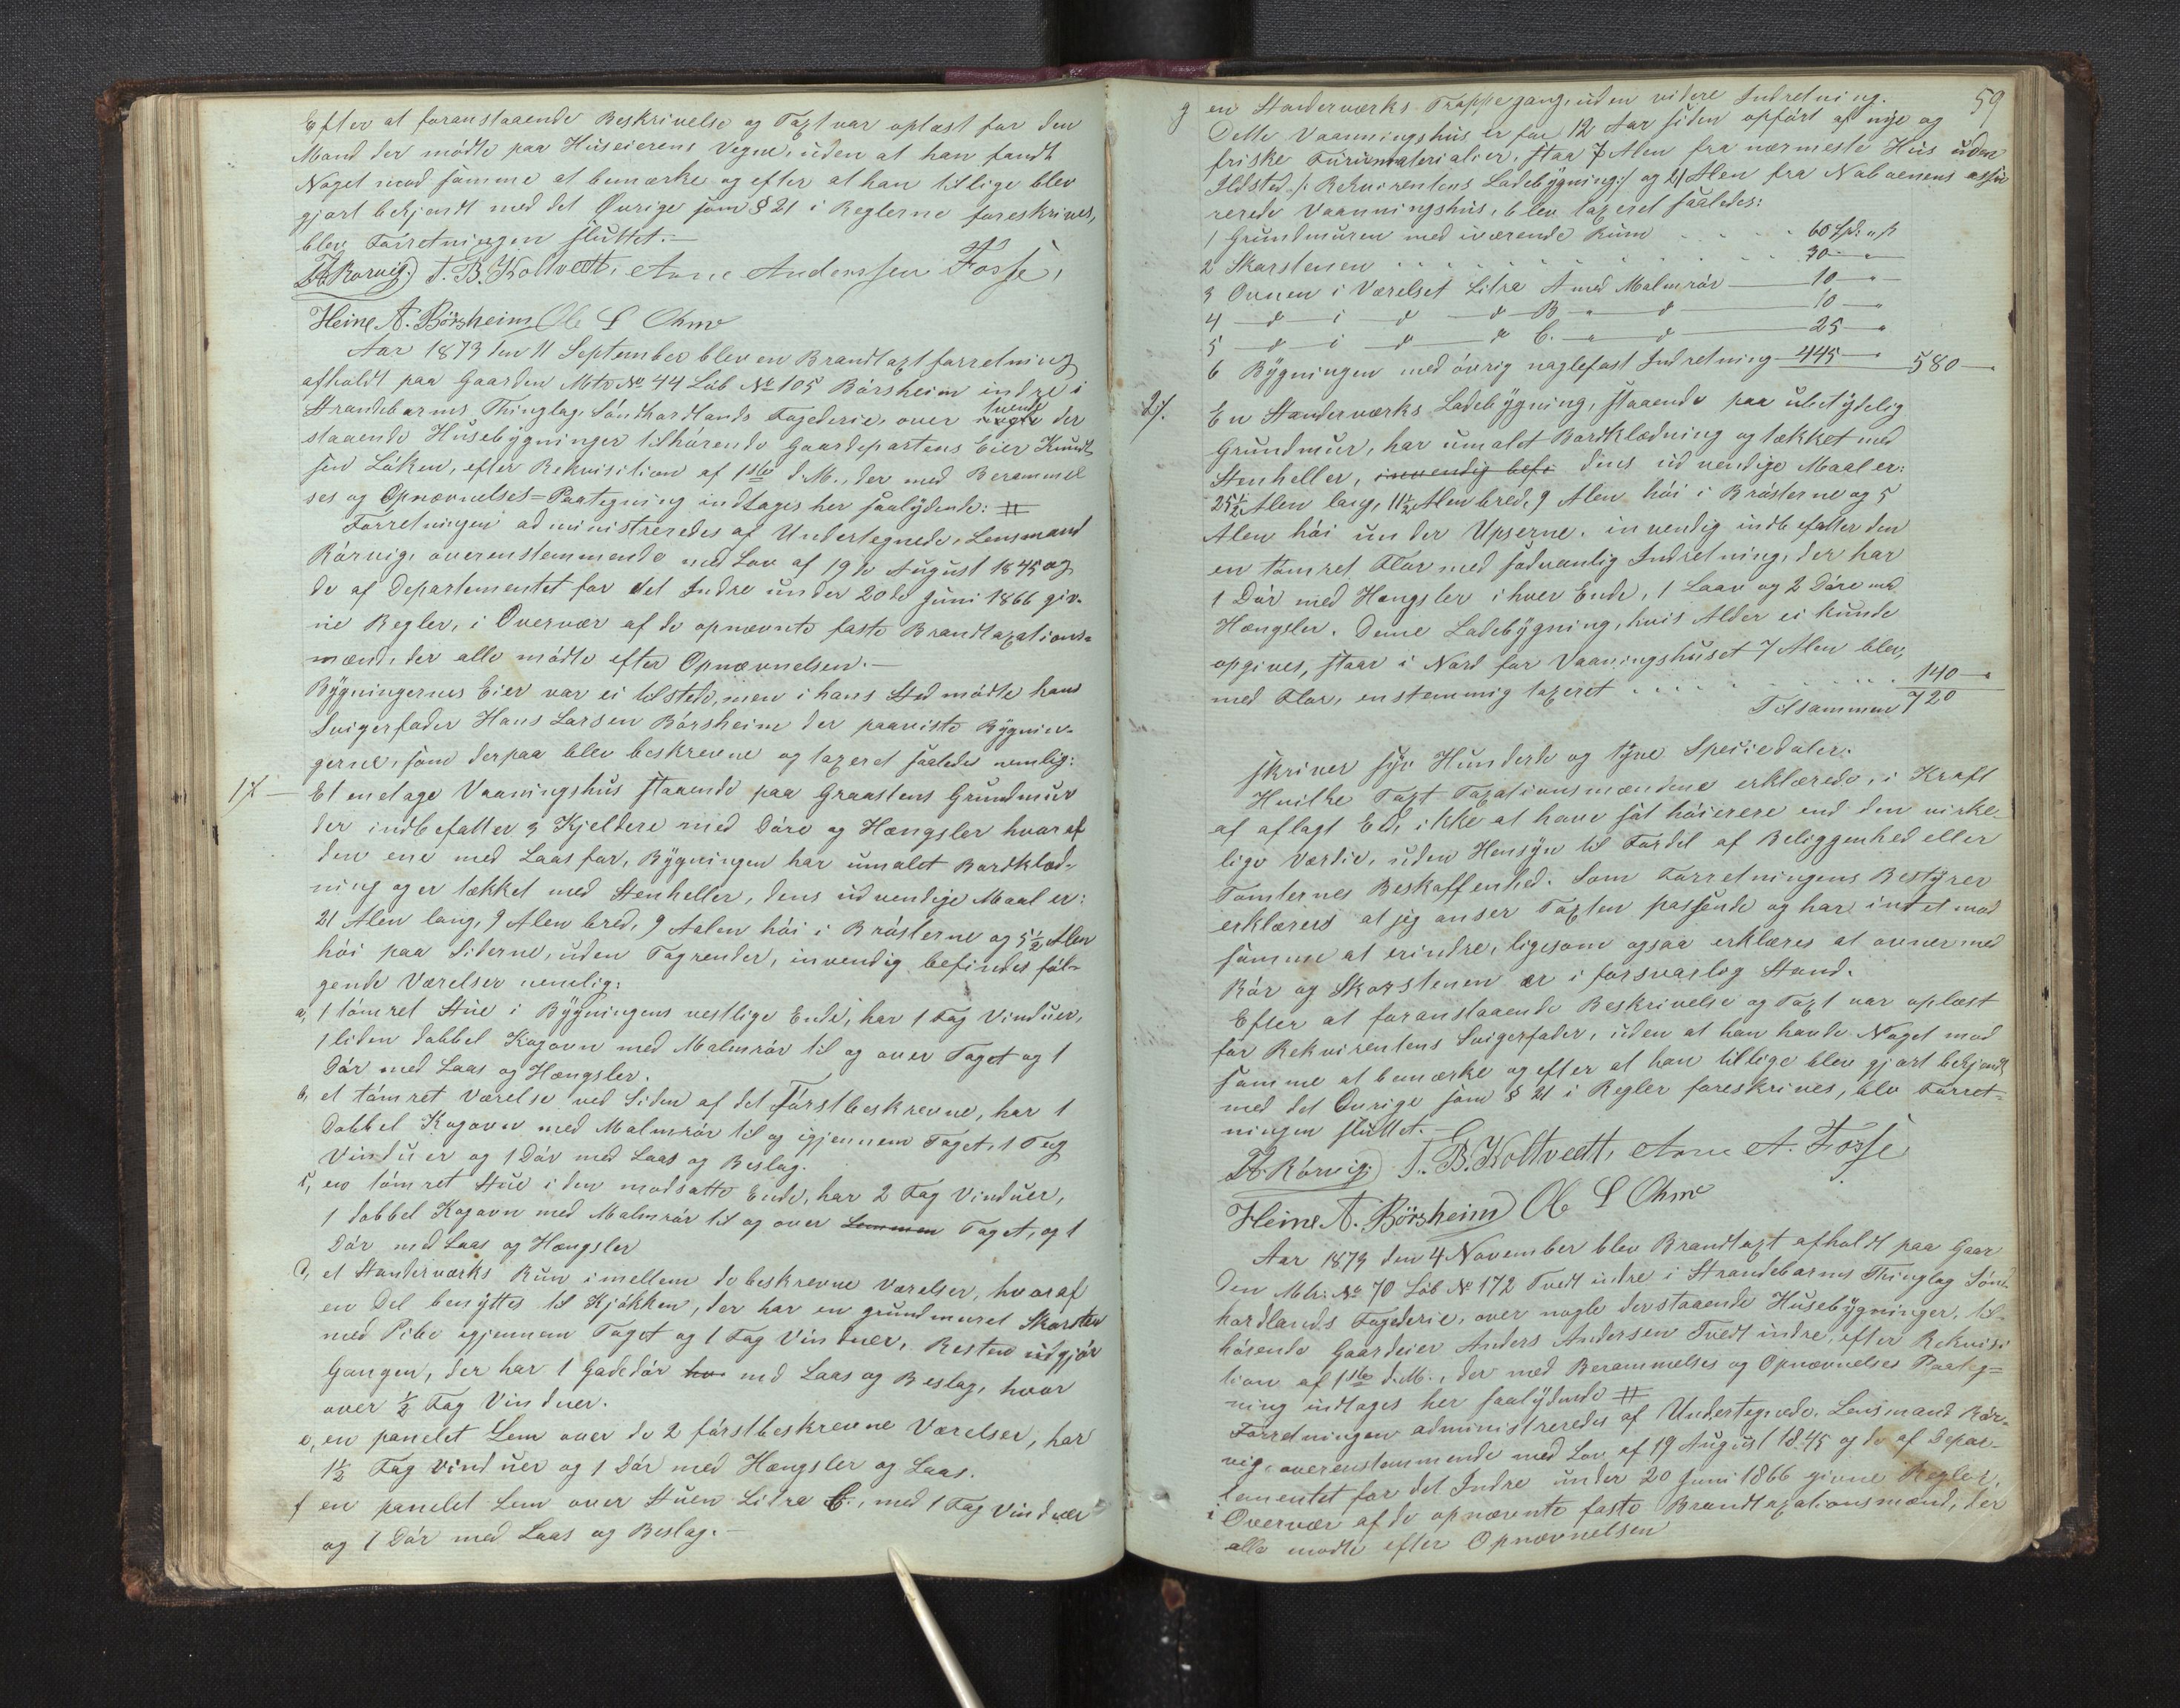 Efter at foranstaaende Beskrivelse og Taxt var oplæst for den
Mand der mødte paa Huseierens Vegne, uden at han fandt
Noget mod samme at bemærke og efter at han tillige blev
gjort bekjendt med det Øvrige som § 21 i Reglerne foreskrives,
blev Forretningen sluttet.—
Rørvig. T. B. Koltvedt, Arne Anderssen Fosse,
Heine A. Börsheim Ole L Ohme
Aar 1873 den 11 September blev en Brandtaxtforretning
afholdt paa Gaarden Mtr No 44 Löb No 105 Börsheim indre i
Strandebarms Thinglag, Söndhordlands Fogederie, over tvende der
staaende Husebygninger tilhörende Gaardepartens Eier Knud
sen Löken, efter Rekvisition af 1ste d. M., der med Berammel
ses og Opnævnelses=Paategning indtages her saalydende: #
Forretningen administreredes af Undertegnede, Lensmand
Rörvig, overenstemmende med Lov af 19de August 1845 og
de af Departementet for det Indre under 20de Juni 1866 giv-
ne Regler, i Overvær af de opnævnte faste Brandtaxations-
mænd, der alle mödte efter Opnævnelsen.—
Bygningernes Eier var ei tilstede, men i hans Sted mödte hans
Svigerfader Hans Larsen Börsheim der paaviste Bygnin-
gerne, som derpaa blev beskrevne og taxeret saaledes nemlig:
1) — Et enetage Vaaningshus staaende paa Graastens Grundmur
der indbefatter 3 Kjeldere med Döre og Hængsler hvoraf
den ene med Laas for, Bygningen har umalet Bordklæd-
ning og er tækket med Stenheller, dens udvendige Maal er:
21 Alen lang, 9 Alen bred, 9 Aalen höi i Brösterne og 5½ Alen
höi paa Siderne, uden Tagrender, invendig befindes föl-
gende Værelser nemlig:
a, 1 tömret Stue i Bygningens vestlige Ende, har 1 Fag Vinduer,
1 liden dobbel Kogovn med Malmrör til og over Taget og 1
Dör med Laas og Hængsler.
b, et tömret Værelse ved Siden af det Förstbeskrevne, har 1
Dobbel Kogovn med Malmrör til og igjennem Taget, 1 Fag
Vinduer og 1 Dör med Laas og Beslag.
c, en tömret Stue i den modsatte Ende, har 2 Fag Vinduer,
1 dobbel Kogovn med Malmrör til og over Lemmen Taget, og 1
Dör med Laas og Hængsler
d, et Standerværks Rum imellem de beskrevne Værelser, hvoraf
en Del benyttes til Kjøkken, der har en grundmuret Skorsten
med Pibe igjennem Taget og 1 Fag Vinduer, Resten udgjör
Gangen, der har 1 Gadedör med Laas og Beslag, hvor
over ½ Fag Vinduer.
e, en panelet Lem over de 2 förstbeskrevne Værelser, har
1½ Fag Vinduer og 1 Dör med Hængsler og Laas.
f en panelet Lem over Stuen Litra C., med 1 Fag Vinduer
og 1 Dör med Laas og Beslag.—
59
g en Standerværks Trappegang, uden videre Indretning.
Dette Vaanningshus er for 12 Aar siden opfört af nye og
friske Furumaterialier, staar 7 Alen fra nærmeste Hus uden
Ildsted /: Rekvirentens Ladebygning :/ og 21 Alen fra Naboenens assu
rerede Vaanningshus, blev taxeret saaledes:
1 Grundmuren med iværende Rum . . . . 60 Spd: " ß
2 Skorstenen . . . . . . . . 30— "
3 Ovnen i Værelset Litra A med Malmrör — 10 — "
4 — d — i — d — d — B — " — d — 10 — "
5 — d — i — d — d C. — " — d — 25 — "
6 Bygningen med övrig naglefast Indretning — 445 — " 580 —
2). En Standerværks Ladebygning, staaende paa ubetydelig
Grundmur, har umalet Bordklædning og tækket med
Stenheller, invendig befi dens udvendige Maal er:
25½ Alen lang, 11½ Alen bred, 9 Alen höi i Brösterne og 5
Alen höi under Upserne. invendig indbefatter den
en tömret Flor med sædvanlig Indretning, der har
1 Dör med Hængsler i hver Ende, 1 Laav og 2 Döre med
Hængsler. Denne Ladebygning, hvis Alder ei kunde
opgives, staar i Nord for Vaaningshuset 7 Alen blev,
med Flor, enstemmig taxeret . . . . . . . 140 — "
Tilsammen 720
skriver syv Hunderde og tyve Speciedaler.
Hvilke Taxt Taxationsmændene erklærede, i Kraft
af aflagt Eed, ikke at have sat höierere end den virke-
lige Værdie, uden Hensyn til Fordel af Beliggenhed eller
Tomternes Beskaffenhed. Som Forretningens Bestyrer
erklæres at jeg anser Taxten passende og har intet mod
samme at erindre, ligesom ogsaa erklæres at ovner med
Rör og Skorstenen er i forsvarlig Stand.
Efter at foranstaaende Beskrivelse og Taxt var oplæst
for Rekvirentens Svigerfader, uden at han havde Noget mod
samme at bemærke og efter at han tillige blev gjort bekjendt
med det Øvrige som § 21 i Regler foreskrives, blev Forret-
ningen sluttet.—
Rörvig. T. B. Koltvedt, Arne A. Fosse
Heine A. Börsheim Ole L Ohme
Aar 1873 den 4 November blev Brandtaxt afholdt paa Gaar
den Mtr: No 70 Löb No 172 Tvedt indre i Strandebarms Thinglag Sönd-
hordlands Fogederie, over nogle derstaaende Husebygninger, til-
hörende Gaardeier Anders Andersen Tvedt indre, efter Rekvisi
tion af 1ste d. M., der med Berammelses og Opnævnelses Paateg=
ning indtages her saalydende #
Forretningen administreredes af Undertegnede, Lensmand Rör-
vig, overenstemmende med Lov af 19 August 1845 og de af Depar-
tementet for det Indre under 20 Juni 1866 givne Regler,
i Overvær af de opnævnte faste Brandtaxationsmænd, der
alle mødte efter Opnævnelsen